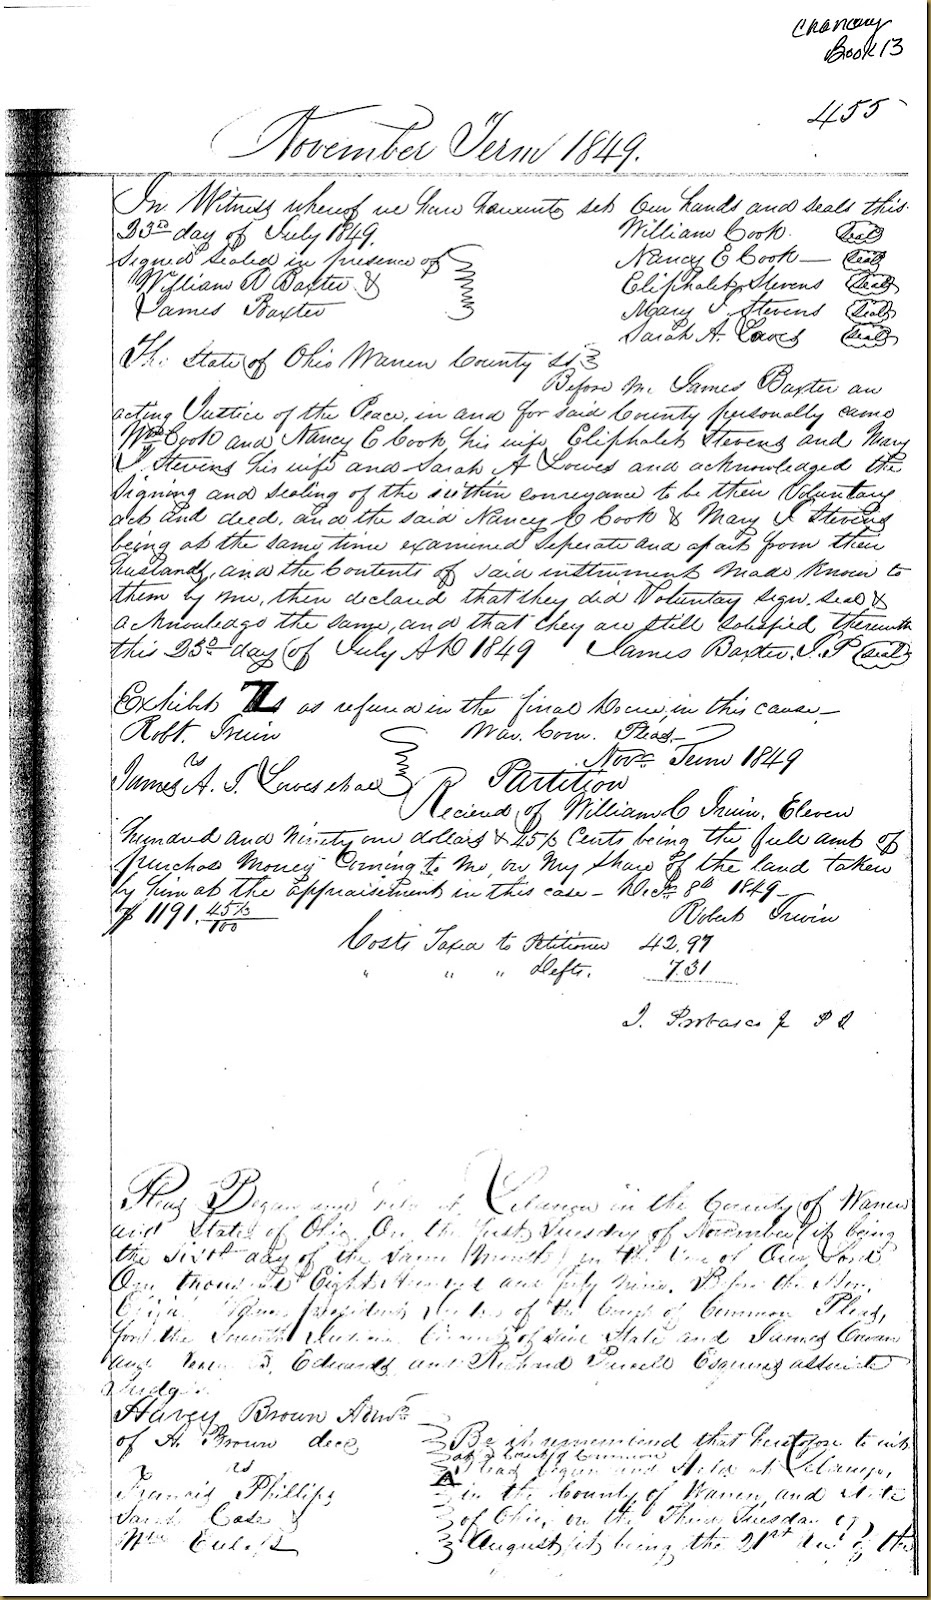 Chancery
Book 13
455
November Term 1849.
In Witness whereof we have hereunto set our hands and seals this
23rd day of July 1849. William Cook. Seal
Signed sealed in presence of Nancy E Cook — Seal
William A Baxter & Eliphalet Stevens Seal
James Baxter Mary J. Stevens Seal
Sarah A. Lowes Seal
The State of Ohio Warren County ss
Before me James Baxter an
acting Justice of the Peace, in and for said County personally came
Wm Cook and Nancy E Cook his wife, Eliphalet Stevens and Mary
J. Stevens his wife and Sarah A Lowes and acknowledged the
signing and sealing of the within conveyance to be their Voluntary
act and deed, and the said Nancy E Cook & Mary J Stevens
being at the same time examined seperate and apart from their
husbands, and the Contents of said instrument made known to
them by me, then declared that they did Voluntary sign, seal &
acknowledge the same, and that they are still satisfied therewith
this 23rd day of July AD 1849 James Baxter, J.P Seal
Exhibit as refered in the final decree, in this cause —
Robt. Irwin War. Com. Pleas —
vs Novr Term 1849
James A. J. Lowes et al Partition
Recieved of William C Irwin, Eleven
hundred and ninety one dollars & 45⅓ Cents being the full amt of
purchase money coming to me, on my share of the land taken
by him at the appraisement in this case — Decr 8th 1849 —
$ 1191. 45⅓/100 Robert Irwin
Costs Taxed to Petitioner 42.97
" " " Defts. 7.31
J. Probasco Jr P J
Pleas Began and held at Lebanon in the County of Warren
and State of Ohio On the first Tuesday of November (it being
the sixth day of the same month) in the of Our Lord
One Eight Hundred and forty nine. Before the Hon.
President of the Court of Common Pleas,
for the of said State and James Cowan
and Edwards and Richard Esquires associate
Judges
Harvey Brown Admr
of A. Brown decd Be it remembered that heretofore to wit
at a Court of Common
vs Pleas began and Held at Lebanon,
Francis Phillips in the County of Warren and State
Sarah Case & of Ohio, on the Third Tuesday of
Wm August (it being the 21st day of the